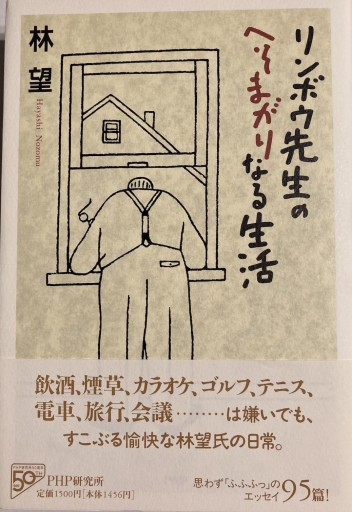 リンボウ先生の
へそまがりなる生活
林 望
Hayashi Nozomu
飲酒、煙草、カラオケ、ゴルフ、テニス、
電車、旅行、会議………は嫌いでも、
すこぶる愉快な林望氏の日常。
50TH
PHP研究所
定価1500円[本体1456円]
思わず「ふふふっ」の
エッセイ95篇!